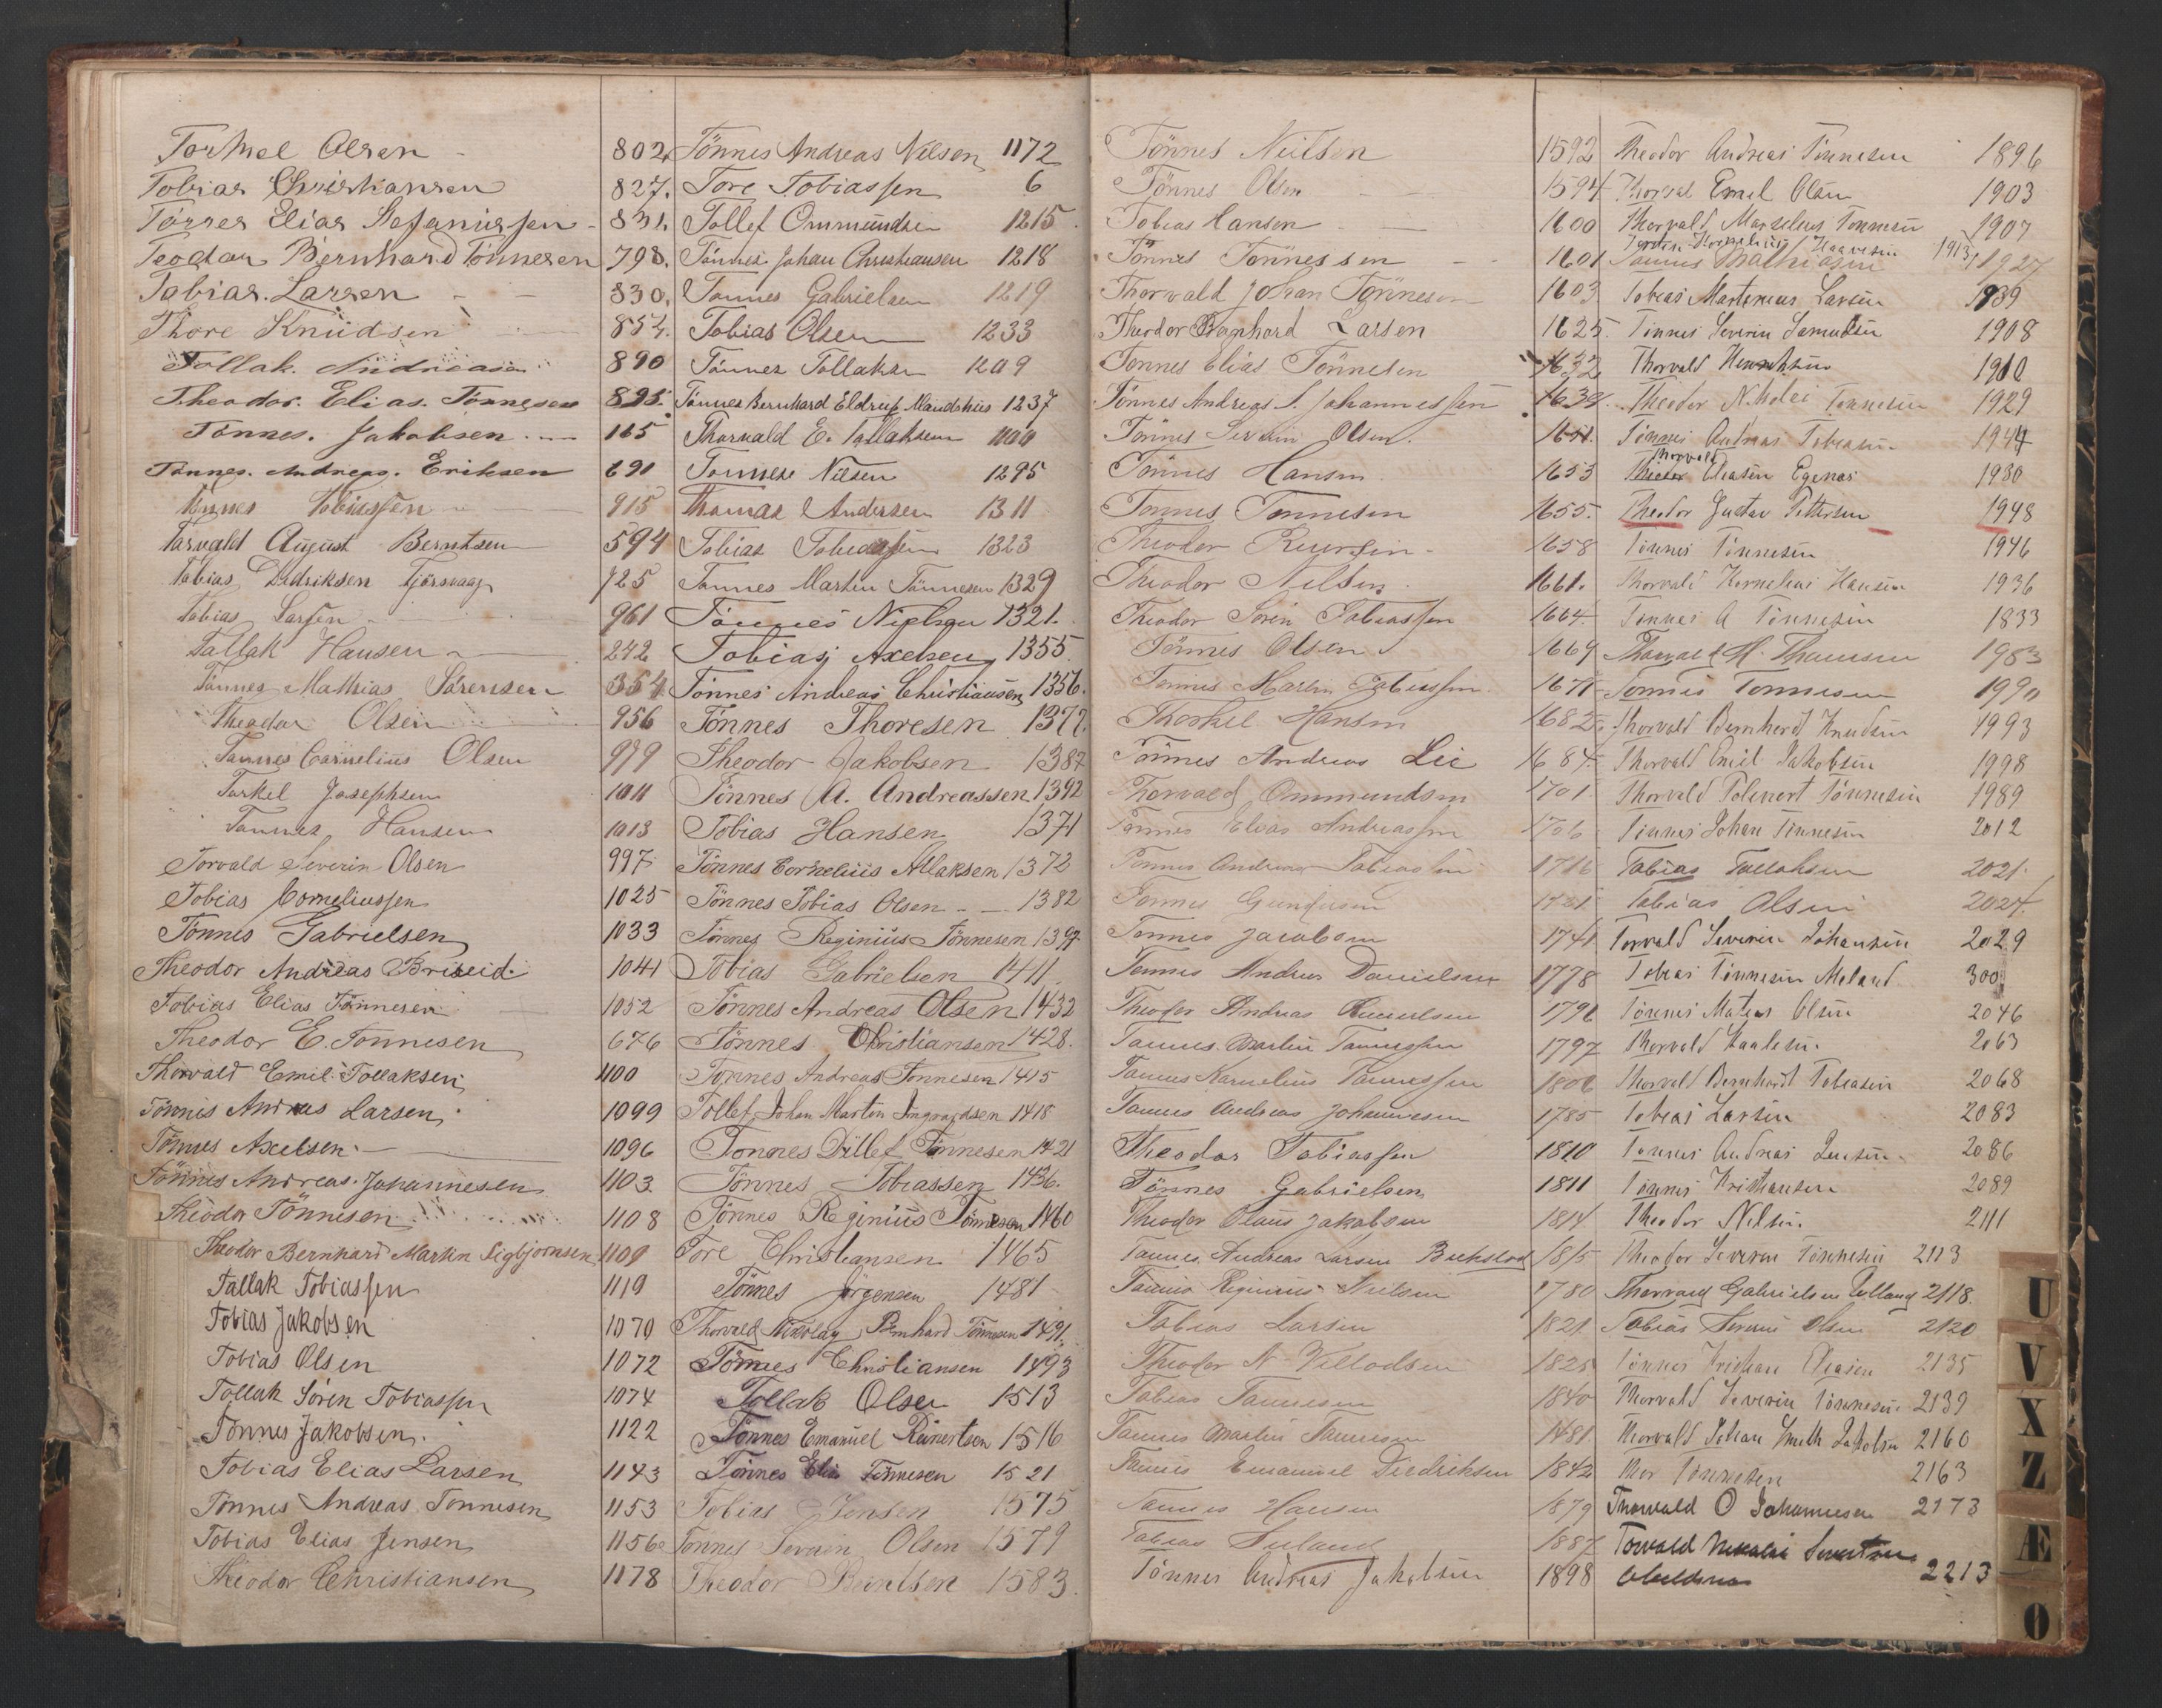 Torkel Olsen - 802.
Tobias Christiansen 827.
Törres Elias Stefanussen - 831.
Teodor Bernhard Tönnesen 798.
Tobias Larsen - - 830.
Thore Knudsen 854.
Tollak Andreasen 890
Theodor Elias Tönnesen 895
Tönnes Jakobsen 165
Tønnes Andreas Eriksen 691
Tönnes Tobiassen 915
Tarvald August Berntsen 594
Tobias Didriksen Tjörsvaag 725
Tobias Larsen 961
Tallak Hansen 242
Tönnes Mathias Sörensen 354
Theodor Olsen 956
Tønnes Cornelius Olsen 979
Torkel Josephsen 1011
Tønnes Hansen 1013
Torvald Severin Olsen 997
Tobias Corneliussen 1025
Tönnes Gabrielsen 1033
Theodor Andreas Briseid 1041
Tobias Elias Tönnesen 1052
Theodor E. Tonnesen 676
Thorvald Emil Tollaksen 1100
Tönnes Andreas Larsen 1099
Tönnes Axelsen 1096
Tönnes Andreas Johannesen 1103
Theodor Tönnesen 1108
Theodor Bernhard Martin Sigbjörnsen 1109
Tallak Tobiassen 1119
Tobias Jakobsen 1070
Tobias Olsen 1072
Tollak Sören Tobiassen 1074
Tönnes Jakobsen. 1122
Tobias Elias Larsen 1143
Tönnes Andreas Tonnesen 1153
Tobias Elias Jensen 1156
Theodor Christiansen 1178
Tönnes Andreas Nelsen 1172
Tore Tobiassen 6
Tollef Ommundsen 1215
Tönnes Johan Christiansen 1218
Tønnes Gabrielsen 1219
Tobias Olsen 1233
Tönnes Tollaksen 1209
Tönnes Bernhard Eldrup 1237
Thorvald E. Tollaksen
Tønnes Nilsen 1295
Thomas Andersen 1311
Tobias Tobiassen 1323
Tønnes Martin Tönnesen 1329
Tönnes Nielsen 1321.
Tobias Axelsen 1355
Tönnes Andreas Christiansen 1356.
Tönnes Thoresen 1377.
Theodor Jakobsen 1387
Tönnes A. Andreassen 1392
Tobias Hansen 1371
Tönnes Cornelius Allaksen 1372
Tönnes Tobias Olsen - 1382
Tönnes Reginius Tönnesen 1397
Tobias Gabrielsen 1411
Tönnes Andreas Olsen 1432
Tönnes Christiansen 1428.
Tonnes Andreas Tonnesen 1415
Tollef Johan Martin Ingvardsen 1418
Tonnes Dillef Tönnesen 1421
Tönnes Tobiassen 1436.
Tönnes Reginius Tönnesen 1460
Tore Christiansen 1465
Tönnes Jörgensen 1481
Thorvald Nikolay Bernhard Tönnesen 1491
Tönnes Christiansen 1493
Tollak Olsen 1513
Tönnes Emanuel Reinertsen 1516
Tönnes Elias Tönnesen 1521
Tobias Jensen 1575
Tönnes Severin Olsen 1579
Theodor Berntsen 1583.
Tönnes Neilson 1592
Tönnes Olsen 1594
Tobias Hansen 1600
Tönnes Tönnessen 1601
Thorvald Johan Tönnesen 1603
Theodor Bernhard Larsen 1625
Tonnes Elias Tönnesen 1632
Tönnes Andreas S. Johannessen 1638
Tönnes Severin Olsen. 1651
Tönnes Hansen 1653
Tonnes Tonnesen 1655.
Theodor 1658
Theodor Nilsen 1661.
Theodor Sörin Tobiassen 1664
Tönnes Olsen 1669
Tönnes Martin Tobiassen 1671
Thorkel Hansen 1682
Tönnes Andreas Lie 1684
Thorvald Ommundsen 1701
Tönnes Elias Andreassen 1706
Tonnes Andreas Tobiassen 1716
Tonnes Gundersen 1721
Tonnes Jacobsen 1741
Tonnes Andreas Danielsen 1778
Theodor Andreas 1796
Tønnes Martin Tønnessen 1797
Tønnes Kornelius Tønnessen 1806
Tønnes Andreas Johannesen 1785
Theodor Tobiassen 1810
Tönnes Gabrielsen 1811
Theodor Olaus Jakobsen 1814
Tønnes Andreas Larsen 1815
Tønnes Reginius Nielsen 1780
Tobias Larsen 1821
Theodor N. Villadsen 1825
Tobias Tønnesen 1840
Tønnes Martin Tønnesen 1481
Tønnes Emanuel Diedriksen 1842
Tønnes Hansen 1879
Tobias 1887
Tönnes Andreas Jakobsen 1898
Theodor Andreas Tönnesen 1896
Thorval Emel Olsen 1903
Thorvald Marselius Tonnesen 1907
Kornelius Haavesen 1913
Tönnes Mathiasen 1927
Tobias Martinius Larsen 1939
Tönnes Severin Samuelsen 1908
Thorvald Henriksen 1910
Theodor Nikolai Tonnesen 1929
Tönnes Andreas Tobiasen 1944
Thorvald
Eliasen Egenes 1930
Theodor Gustav Pettersen 1948
Tönnes Tönnesen 1946
Thorvald Kornelius Hansen 1936
Tönnes A Tönnesen 1833
Thorvald M. Thomsen 1983
Tønnes Tonnesen 1990
Thorvald Bernherd Knudsen 1993
Thorvald Emil Jakobsen 1998
Thorvald Tönnesen 1989
Tönnes Johan Tönnesen 2012
Tobias Tollaksen 2021
Tobias Olsen 2024.
Torvald Severin Johansen 2029
Tobias Tönnesen Meland 300
Tönnes Olsen 2046
Thorvald 2063
Thorvald Bernhard Tobiasen 2068
Tobias Larsen 2083
Tönnes Andreas Jensen 2086
Tönnes Kristiansen 2089
Theodor Nilsen. 2111
Theodor Severin Tönnesen 2113
Gabrielsen 2118.
Tobias Severin Olsen 2120
Tönnes Kristian Eliasen 2135
Thorvald Severin Tönnesen 2139
Thorvald Johan Jakobsen 2160
Thor Tönnesen 2163
Thorvald O Johannesen 2173
Torvald Nikolai
2213
U
V
X
Z
Æ
Ø